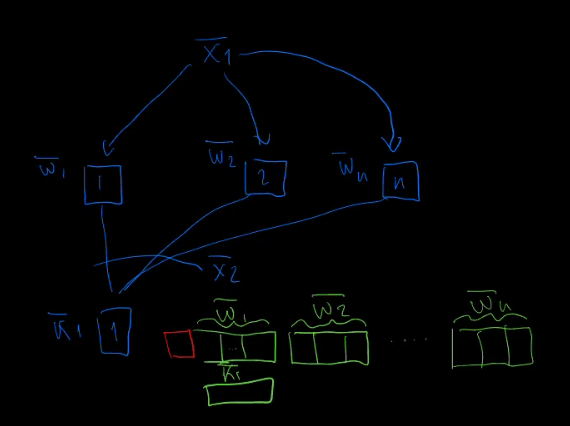 x̅1
w̅1 1 w̅2 2 w̅n n
x̅2
k̅1 1 w̅1 w̅2 ..... w̅n
k̅1